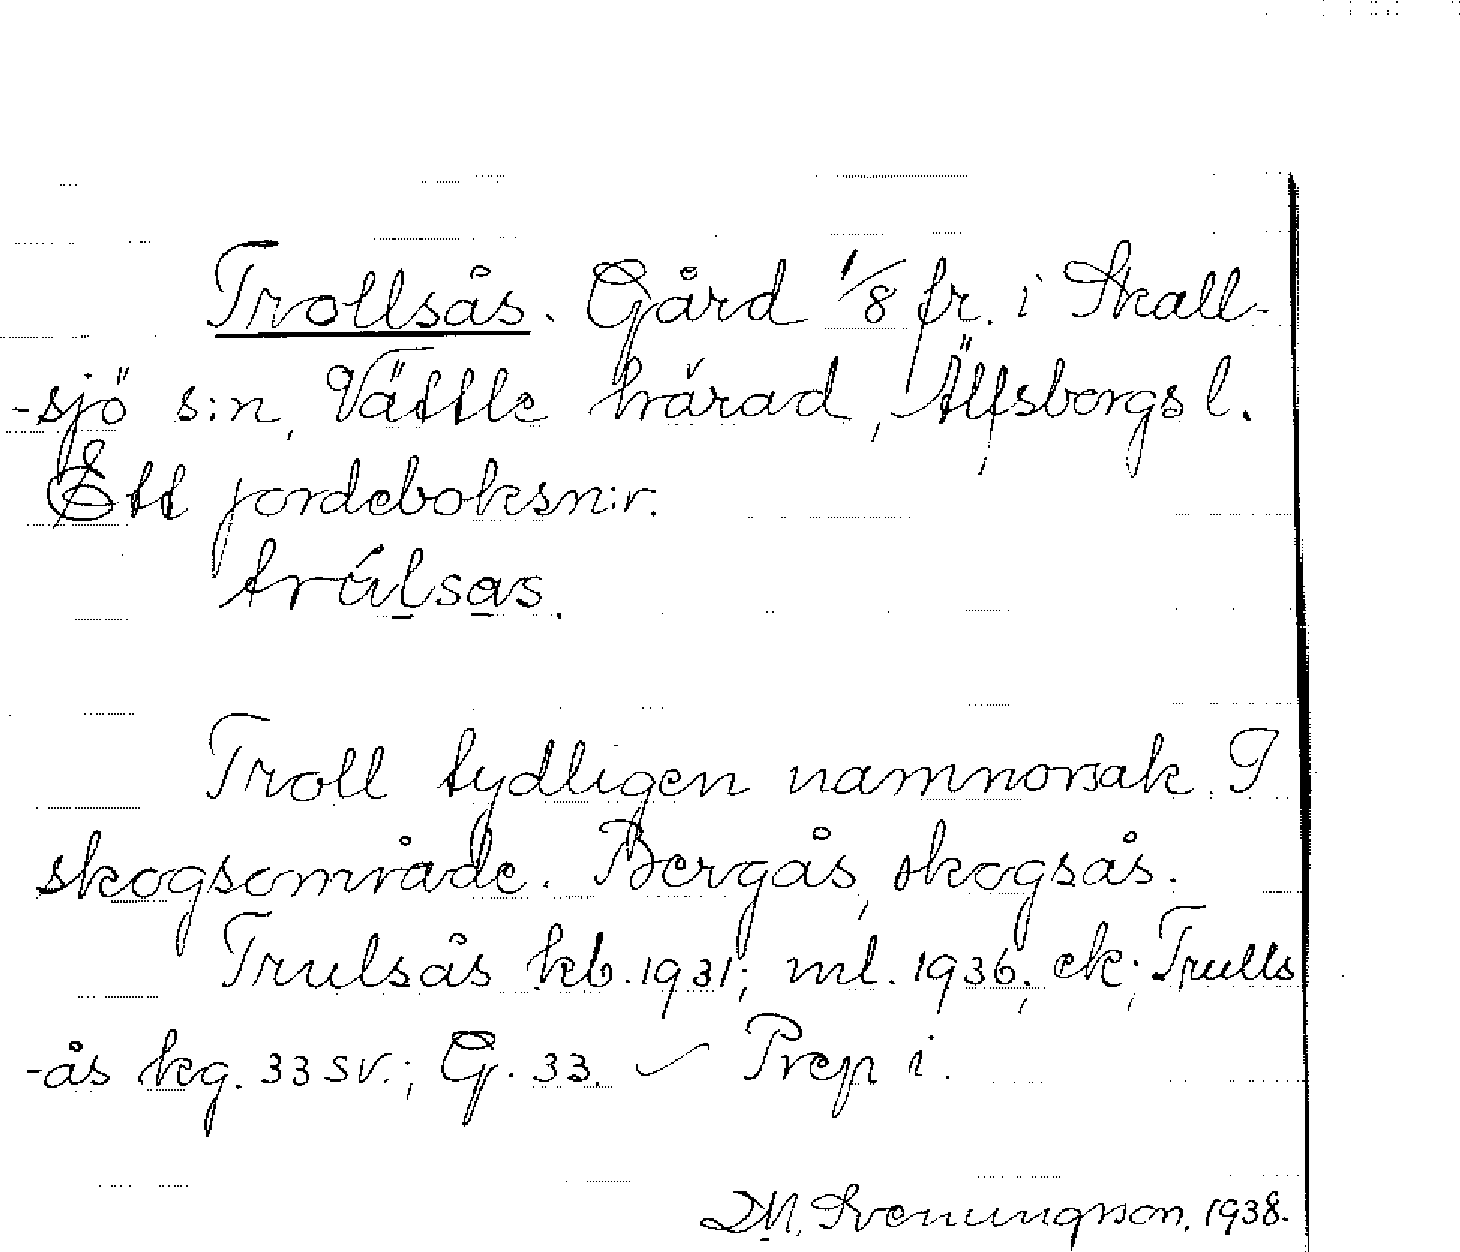 Trollsås. Gård 1/8 fr. i Skall-
-sjö s:n, Vättle härad, Älfsborgs l.
Ett jordeboksn:r.
trúlsas.
Troll tydligen namnorsak. I
skogsområde. Bergås, skogsås.
Trulsås kb. 1931; ml. 1936; ek; Trulls
-ås kg. 33 sv.; G. 33. ✓ Prep i.
D.N. Svenungsson. 1938.